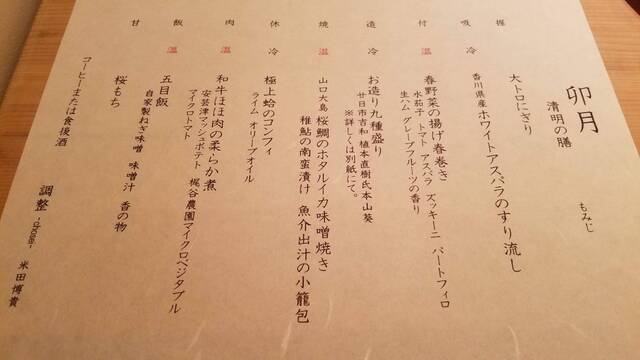 卯月
清明の膳
もみじ
握
大トロにぎり
吸 冷
香川県産ホワイトアスパラのすり流し
付 温
春野菜の揚げ春巻き
水茄子 トマト アスパラ ズッキーニ パートフィロ
生ハム グレープフルーツの香り
造 冷
お造り九種盛り
廿日市吉和 植本直樹氏本山葵
※詳しくは別紙にて。
焼 温
山口大島 桜鯛のホタルイカ味噌焼き
稚鮎の南蛮漬け 魚介出汁の小籠包
休 冷
極上蛤のコンフィ
ライム オリーブオイル
肉 温
和牛ほほ肉の柔らか煮
安芸津マッシュポテト 梶谷農園マイクロベジタブル
マイクロトマト
飯 温
五目飯
自家製ねぎ味噌 味噌汁 香の物
甘
桜もち
コーヒーまたは食後酒
調整 -chosei- 米田博貴